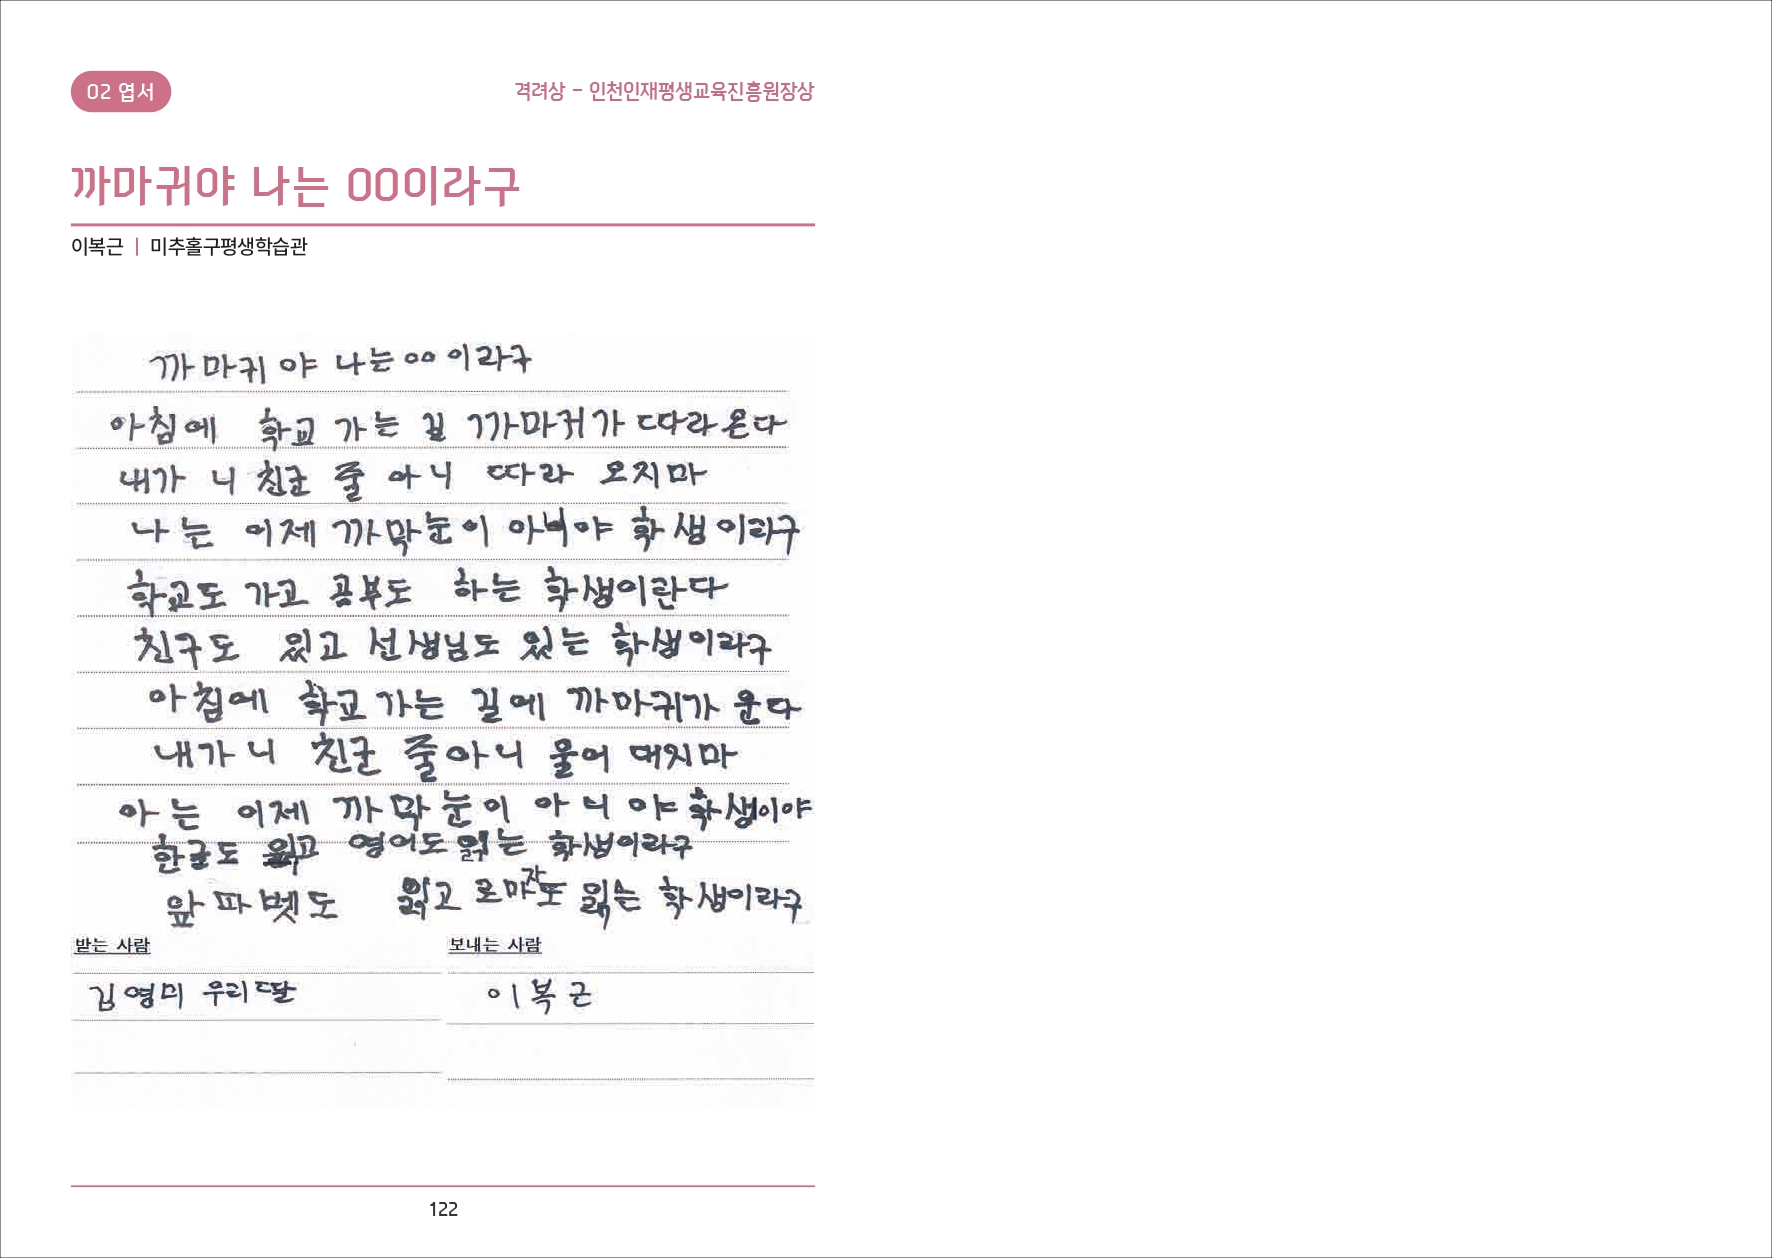 02 엽서
격려상 - 인천인재평생교육진흥원장상
까마귀야 나는 OO이라구
이복근 | 미추홀구평생학습관
까마귀야 나는 oo이라구
아침에 학교 가는 길 까마귀가 따라온다
내가 니 친군 줄 아니 따라 오지마
나는 이제 까막눈이 아니야 학생이라구
학교도 가고 공부도 하는 학생이란다
친구도 있고 선생님도 있는 학생이라구
아침에 학교 가는 길에 까마귀가 운다
내가 니 친군 줄아니 울어 대지마
아는 이제 까막눈이 아니야 학생이야
한글도 읽고 영어도 읽는 학생이라구
앞파벳도 읽고 로마자도 읽는 학생이라구
받는 사람
보내는 사람
김영미 우리딸
이복근
122